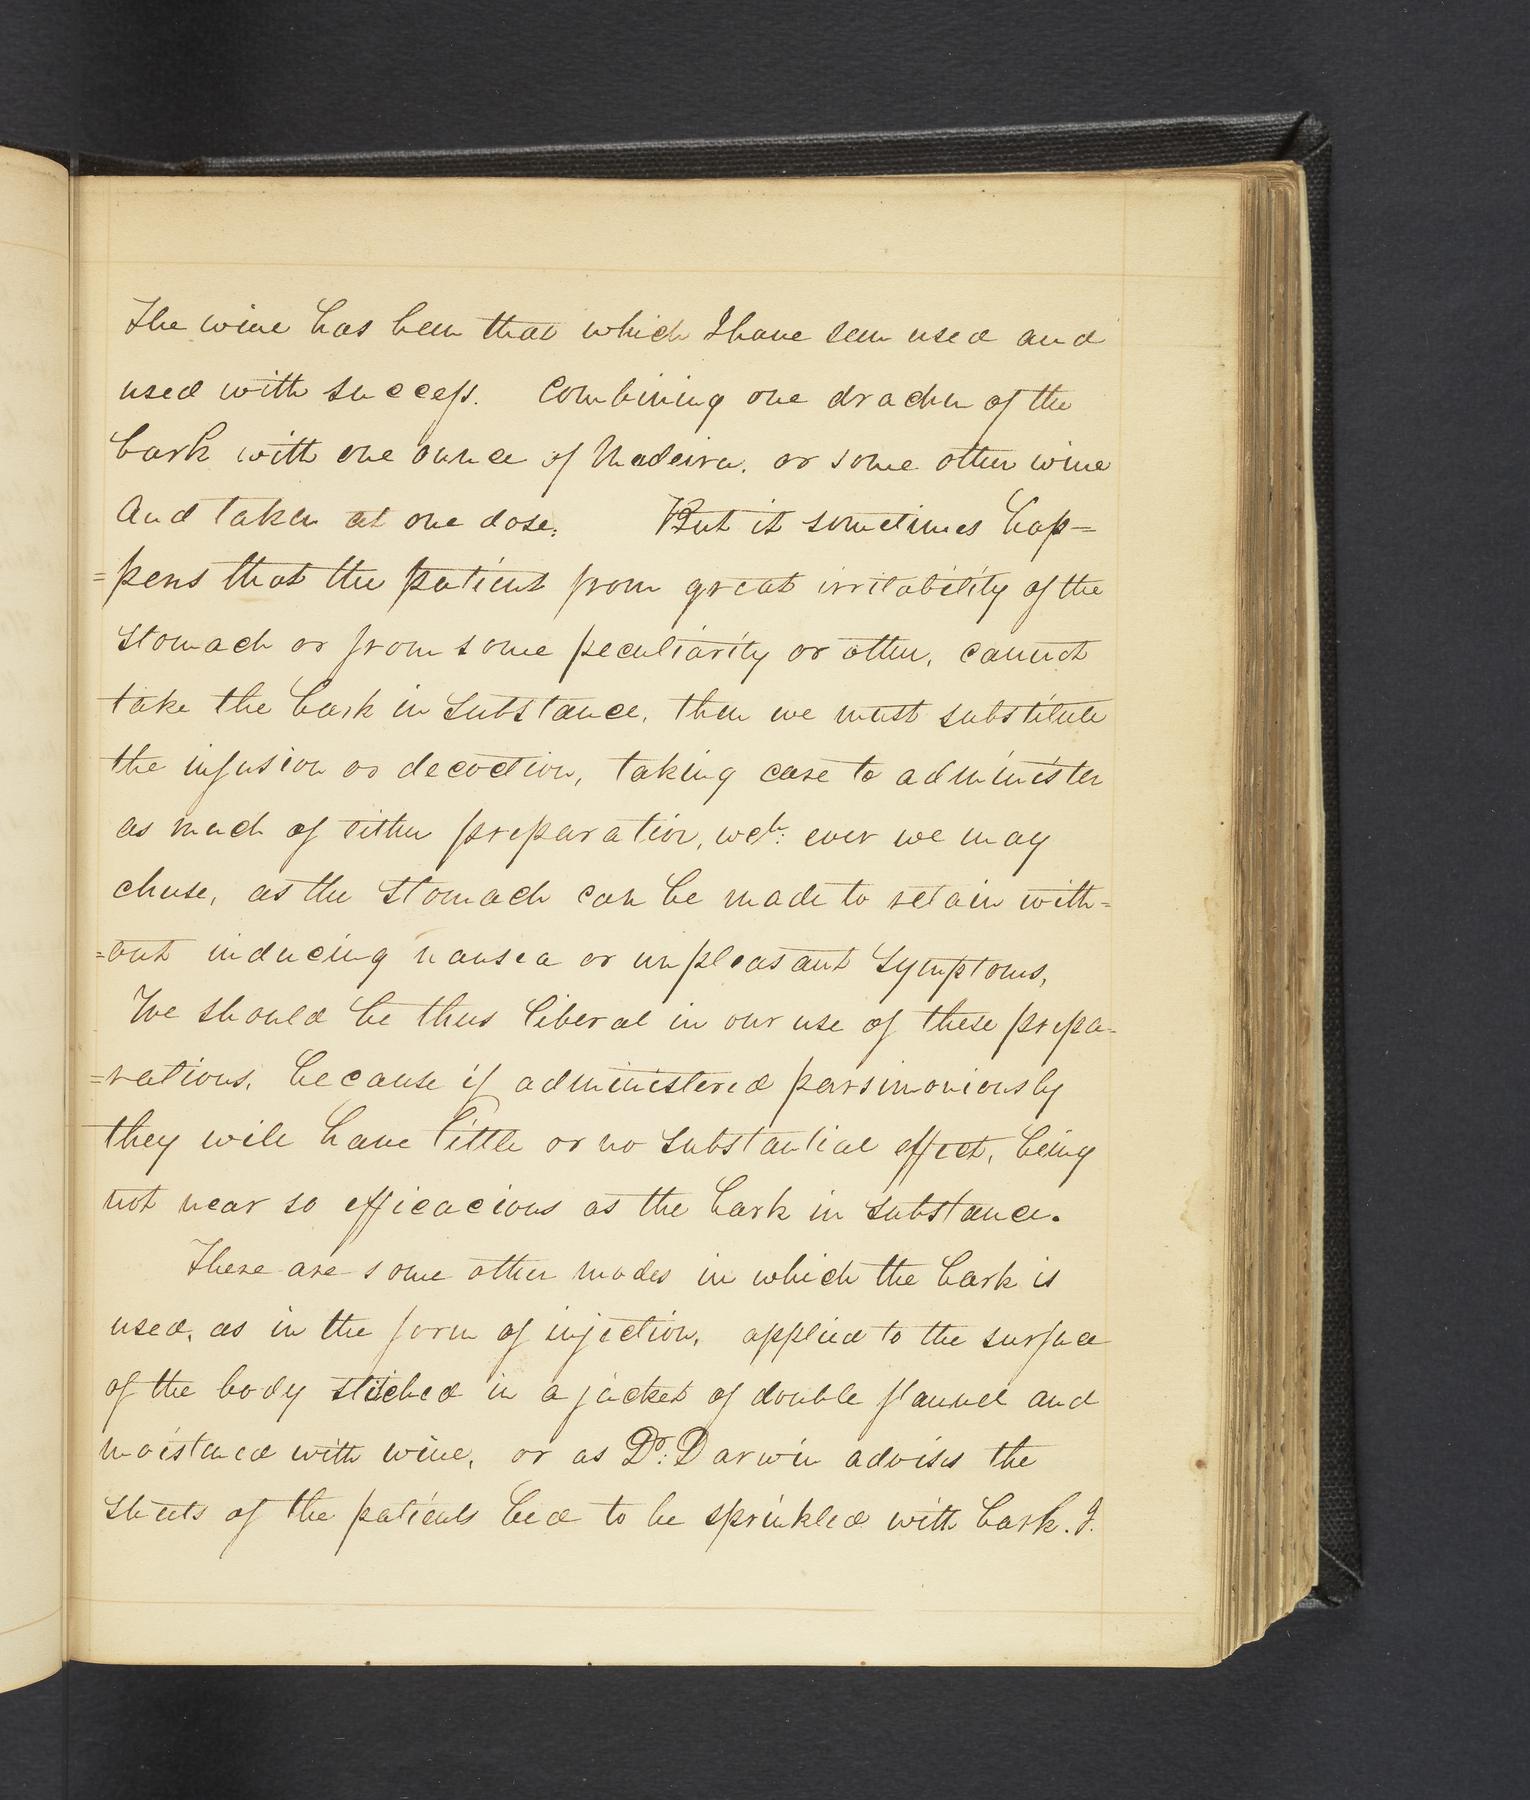 The wine has been that which I have seen used and
used with success. Combining one drachm of the
bark with one ounce of Madeira. or some other wine
And taken at one dose. But it sometimes hap=
=pens that the patient from great irritability of the
stomach or from some peculiarity or other, cannot
take the bark in substance, then we must substitute
the infusion or decoction, taking care to administer
as much of either preparation, wch: ever we may
chuse, as the stomach can be made to retain with=
=out inducing nausea or unpleasant symptoms,
We should be thus liberal in our use of these prepa=
=rations, because if administered parsimoniously
they will have little or no substantial effect, being
not near so efficacious as the bark in substance.
There are some other modes in which the bark is
used, as in the form of injection, applied to the surface
of the body stitched in a jacket of double flannel and
moistened with wine, or as Dr: Darwin advises the
sheets of the patients bed to be sprinkled with bark. I.